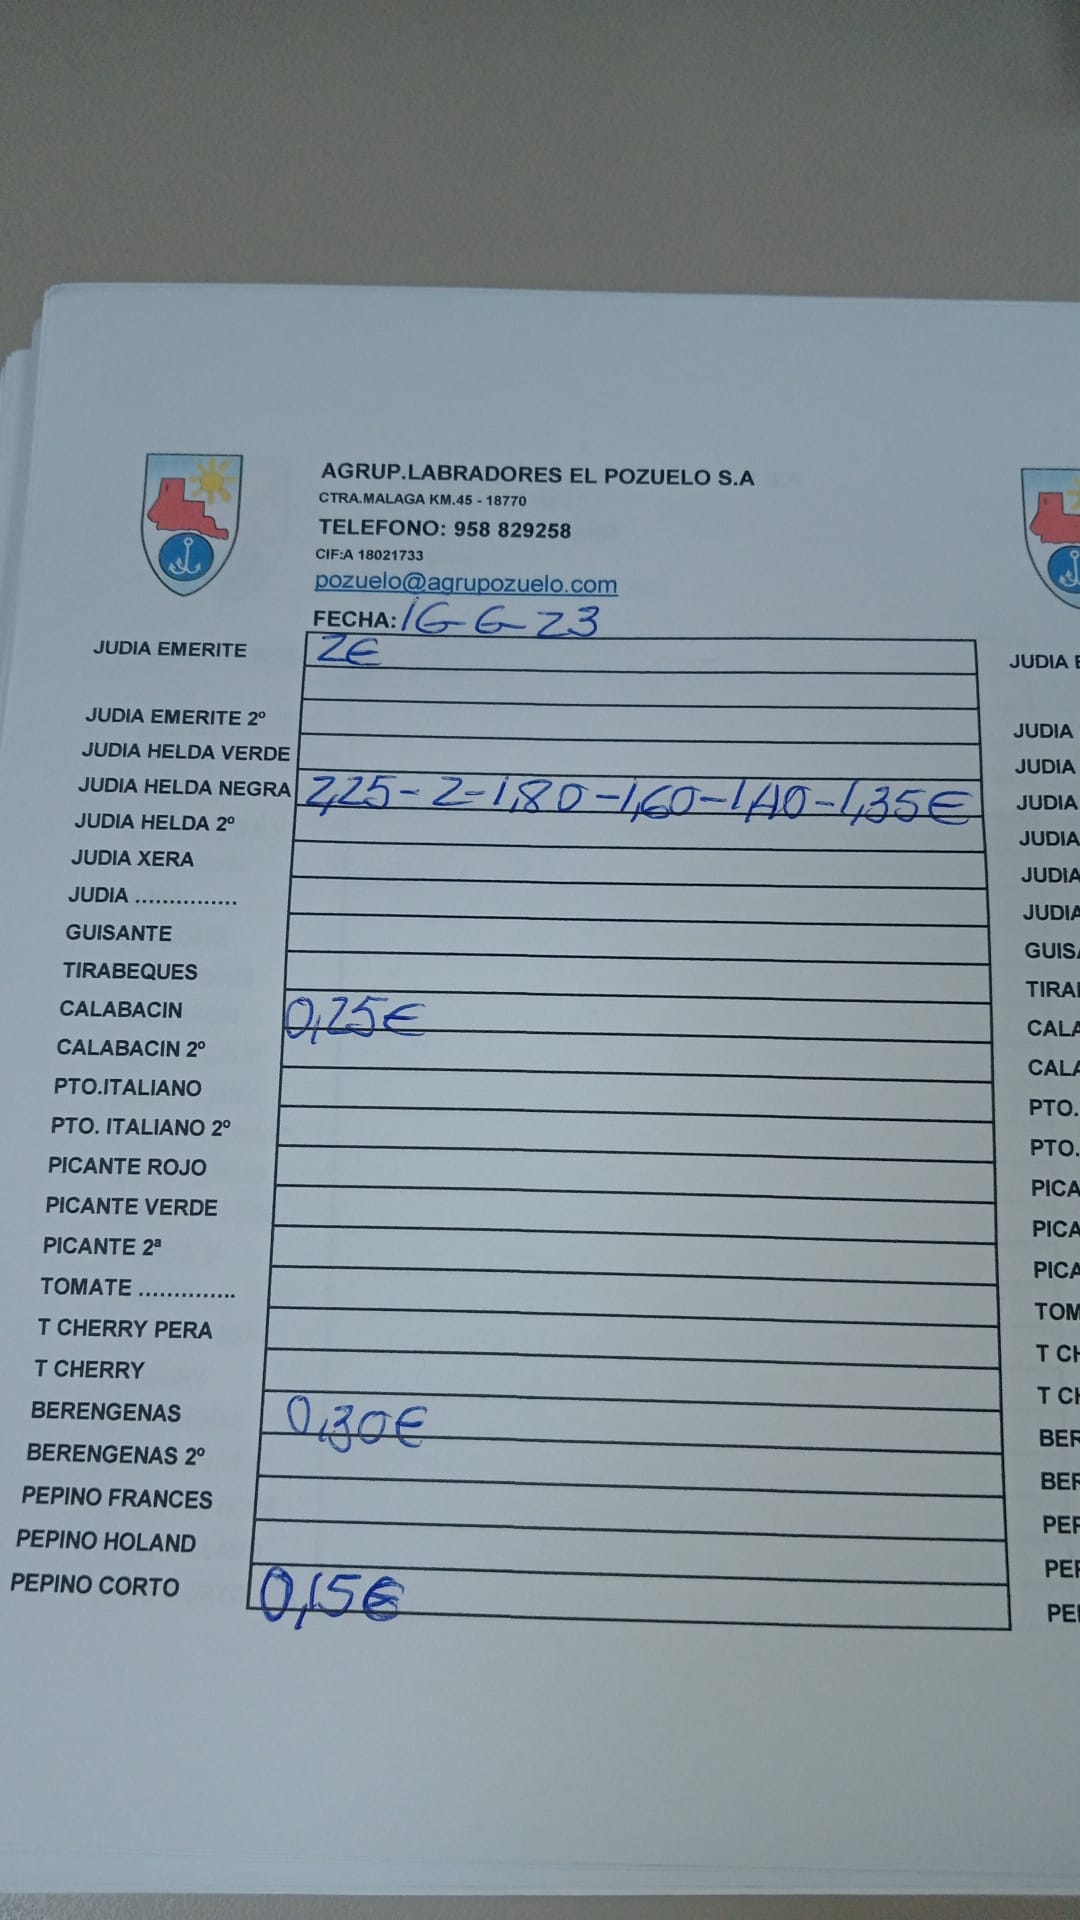 AGRUP.LABRADORES EL POZUELO S.A
CTRA.MALAGA KM.45 - 18770
TELEFONO: 958 829258
CIF:A 18021733
pozuelo@agrupozuelo.com
FECHA: 16-6-23
JUDIA EMERITE 2€
JUDIA EMERITE 2º
JUDIA HELDA VERDE
JUDIA HELDA NEGRA 2,25-2-1,80-1,60-1,40-1,35€
JUDIA HELDA 2º
JUDIA XERA
JUDIA ...............
GUISANTE
TIRABEQUES
CALABACIN 0,25€
CALABACIN 2º
PTO.ITALIANO
PTO. ITALIANO 2º
PICANTE ROJO
PICANTE VERDE
PICANTE 2ª
TOMATE ..............
T CHERRY PERA
T CHERRY
BERENGENAS 0,30€
BERENGENAS 2º
PEPINO FRANCES
PEPINO HOLAND
PEPINO CORTO 0,15€
JUDIA E
JUDIA
JUDIA
JUDIA
JUDIA
JUDIA
JUDIA
GUISA
TIRA
CALA
CALA
PTO.
PTO.
PICA
PICA
PICA
TOM
T CH
T CH
BER
BER
PEP
PEP
PEP